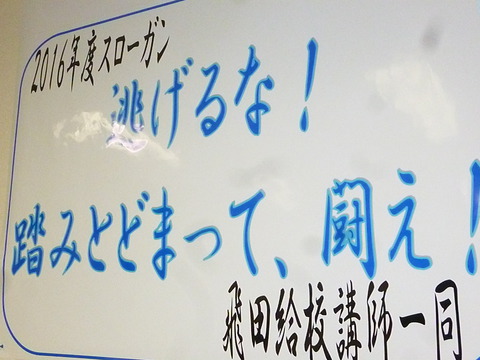 2016年度スローガン
逃げるな！
踏みとどまって、闘え！
飛田給校講師一同